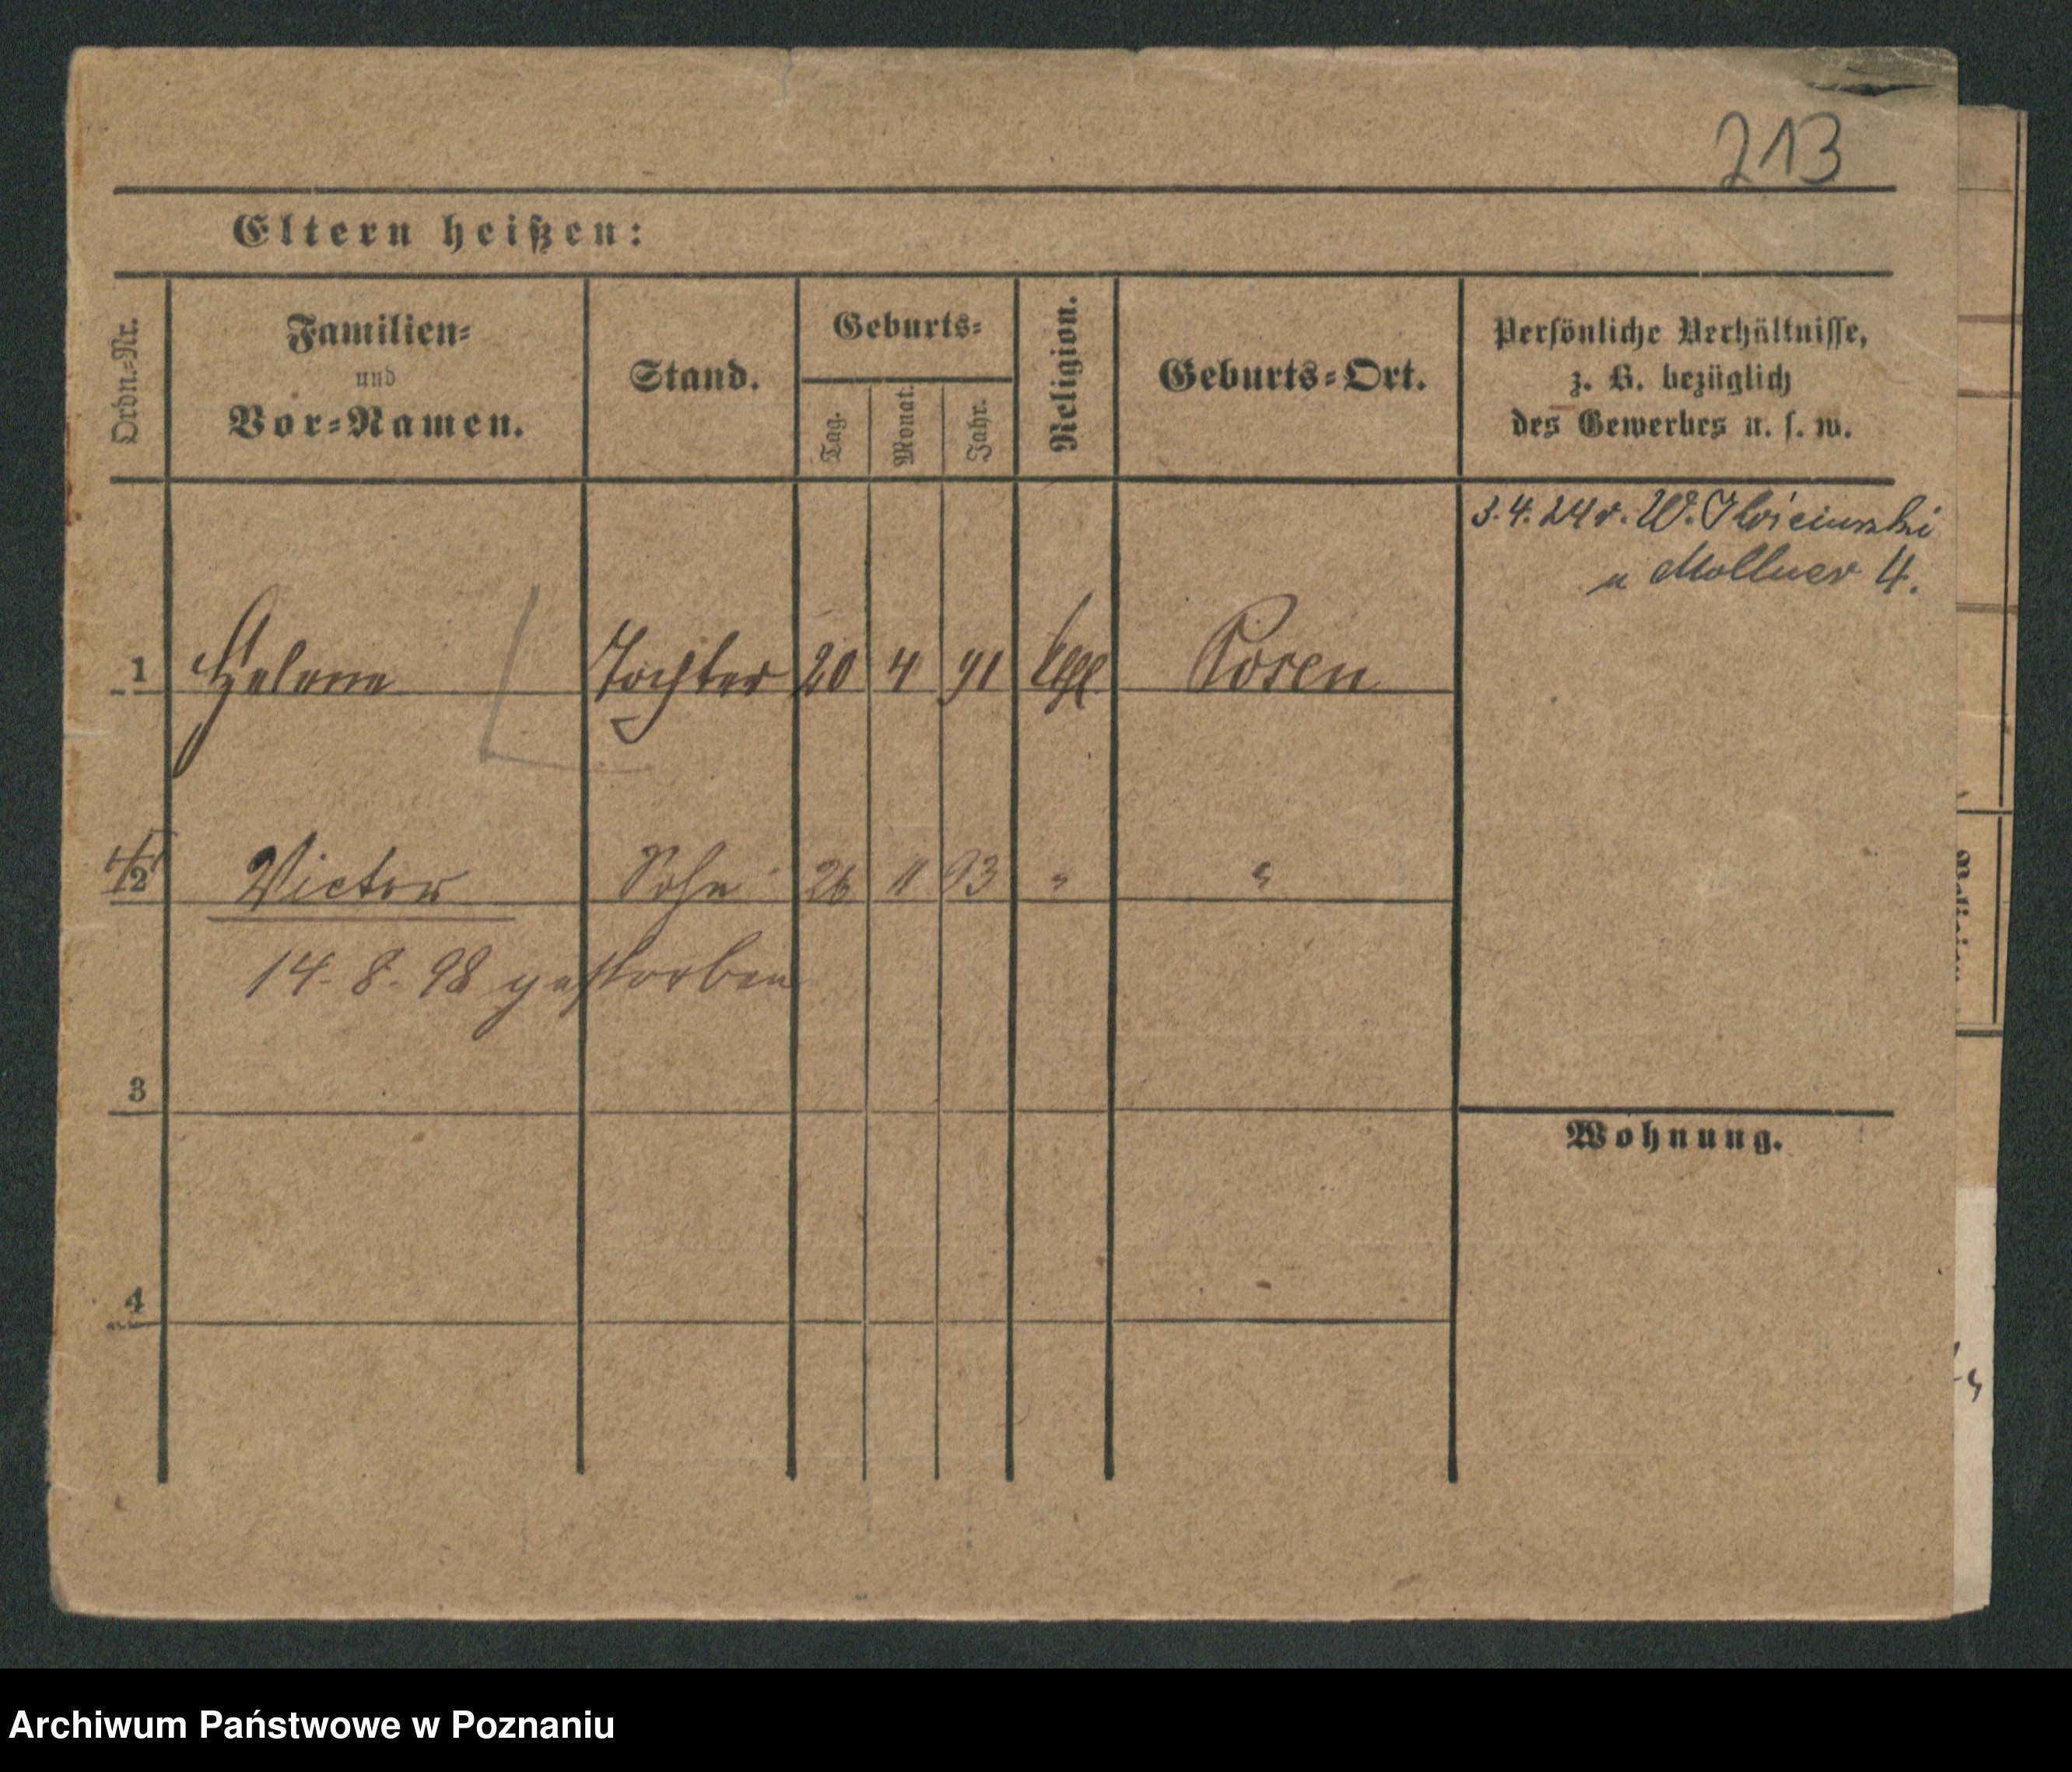 213
Eltern heißen:
Ordn.=Nr.
Familien=
und
Vor=Namen.
Stand.
Geburts=
Tag.
Monat.
Jahr.
Religion.
Geburts=Ort.
Persönliche Verhältnisse,
z. B. bezüglich
des Gewerbes u. s. w.
3.4.24 r. W.
u Mollner 4.
1 Helene Tochter 20 4 91 Posen
2 Victor Sohn 26 11 93 " "
14. 8. 98 gestorben
3
Wohnung.
4
Archiwum Państwowe w Poznaniu